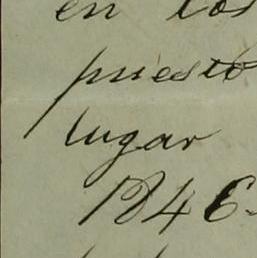 en los
puesto
lugar
1846-